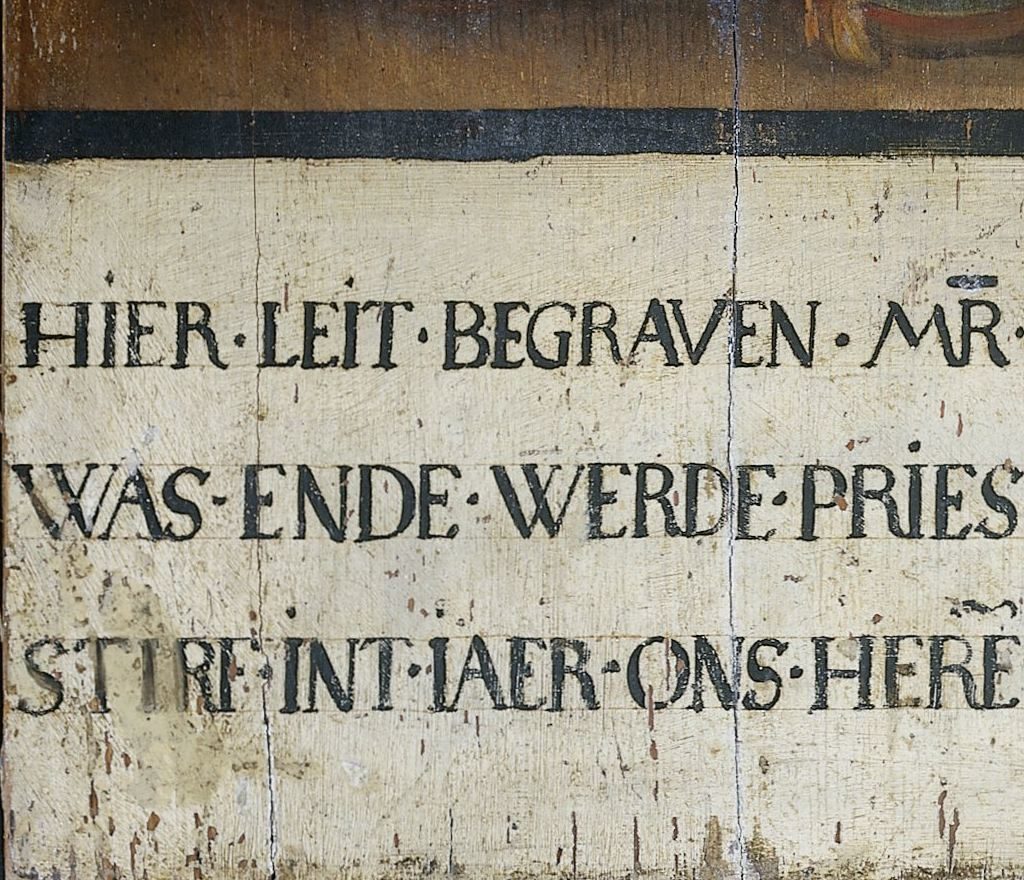 HIER·LEIT·BEGRAVEN·MR̄·
WAS·ENDE·WERDE·PRIES
STIRF·INT·IAER·ONS·HERE̅